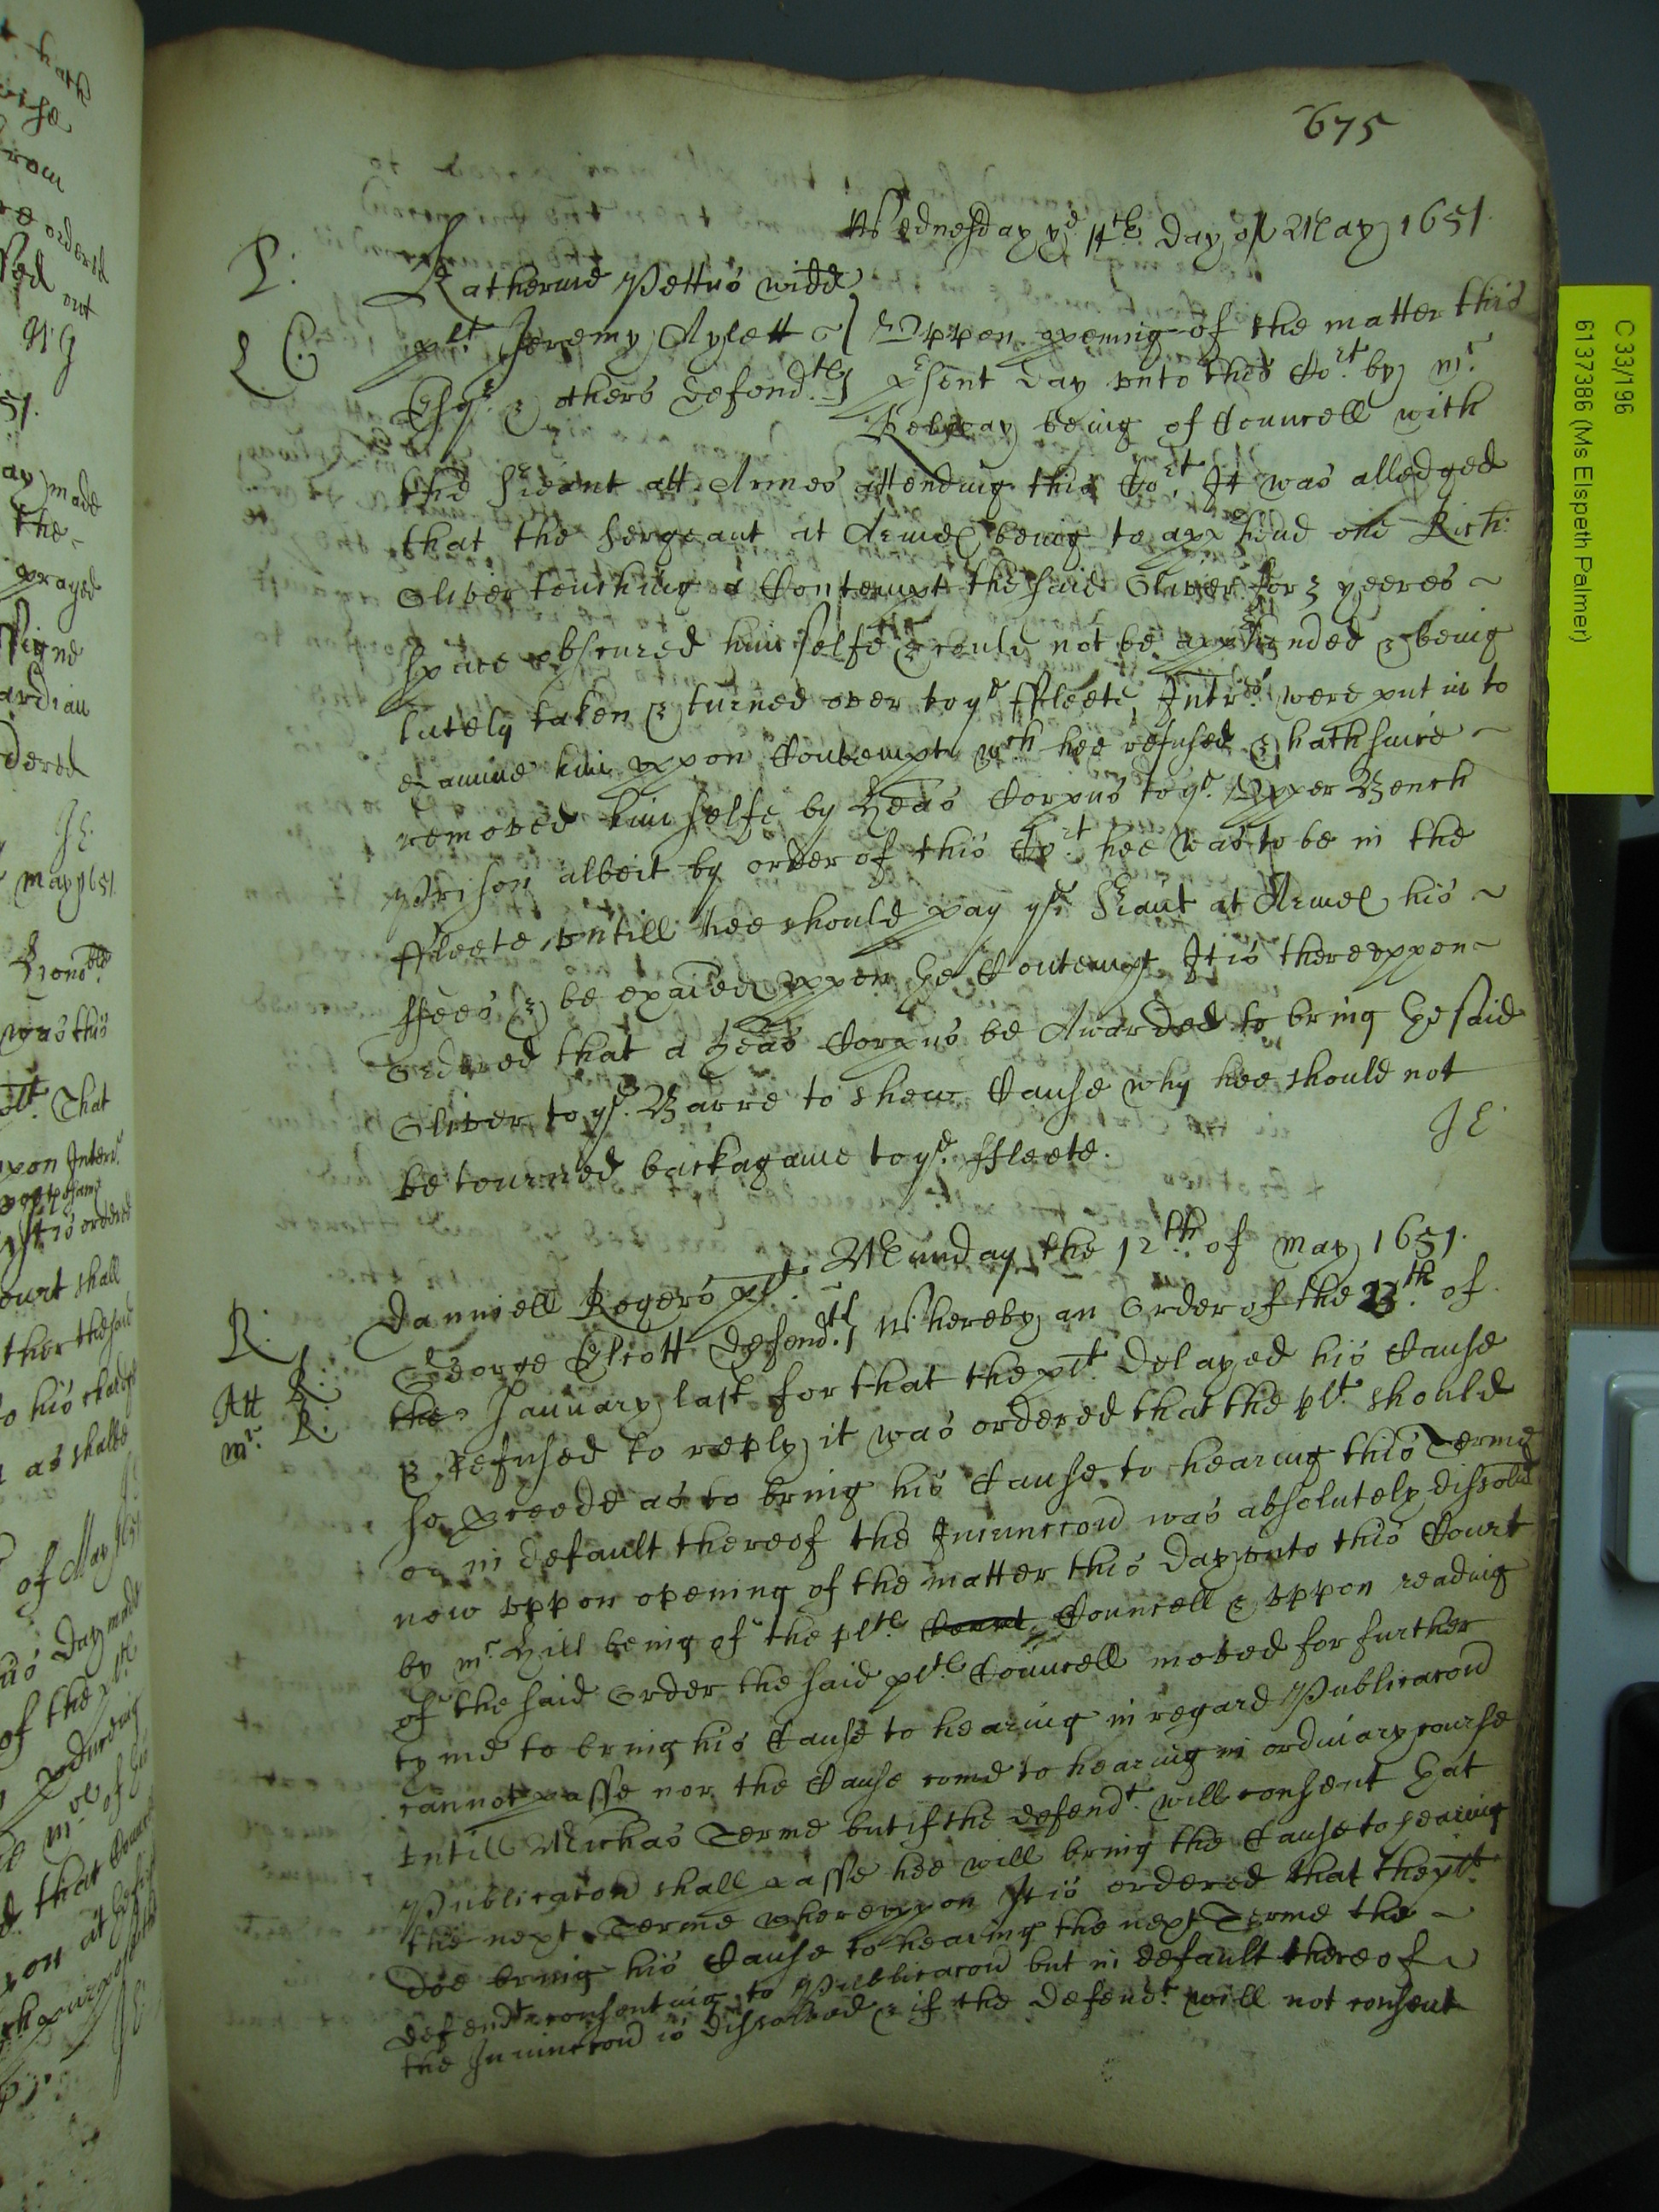 675
Wednesday ye 14th. Day of May 1651.
P:
Katherine Pettus widd
L C:
plt. Jeremy Aylett } Uppon opening of the matter this
Esqr. & others defendtes } psent day unto this Cort by mr.
being of Councell with
the Sieant att Armes attending this Cort, It was alledged
that the Sergeant at Armes being to apphend one Rich:
Oliver touching a Contempt the said Oliver for 3 yeeres ~
space obscured himselfe & could not be apphended & being
lately taken & turned over to ye ffleete, Intrs. were put in to
examine him uppon Contempt wch hee refused & hath since ~
removed himselfe by Heas Corpus to ye. Upper Bench
Prison albeit by order of this Cort hee was to be in the
ffleete untill hee should pay ye Sieant at Armes his ~
ffees & be exaied uppon he Contempt It is thereuppon ~
Ordered that a Heas Corpus be Awarded to bring he said
Oliver to ye. Barre to shew Cause why hee should not
be tourned backagaine to ye. ffleete.
J E
Munday the 12th. of May 1651.
R:
Danniell Rogers plt.
George Elcott Defendt } Whereby an Order of the 23th. of
R:
Att
the January last for that the plt. delayed his Cause
mr. R:
& refused to reply it was ordered that the plt. should
so pceede as to bring his Cause to hearing this Terme
or in default thereof the Iniunccon was absolutely dissolvd
now uppon opening of the matter this day unto this Court
by mr. Hill being of the plts. Court Councell & uppon reading
of the said Order the said plts. Councell moved for further
tyme to bring his Cause to hearing in regard Publicacon
cannot passe nor the Cause come to hearing in ordinary course
untill Michas Terme but if the defendt. will consent hat
Publicacon shall passe hee will bring the Cause to hearing
the next Terme whereuppon It is ordered that the plt.
doe bring his Cause to hearing the next Terme the ~
defendt consenting to Publicacon but in default thereof ~
the Iniunccon is dissolved & if the Defendt. will not consent
C 33/196
6137386 (Ms Elspeth Palmer)